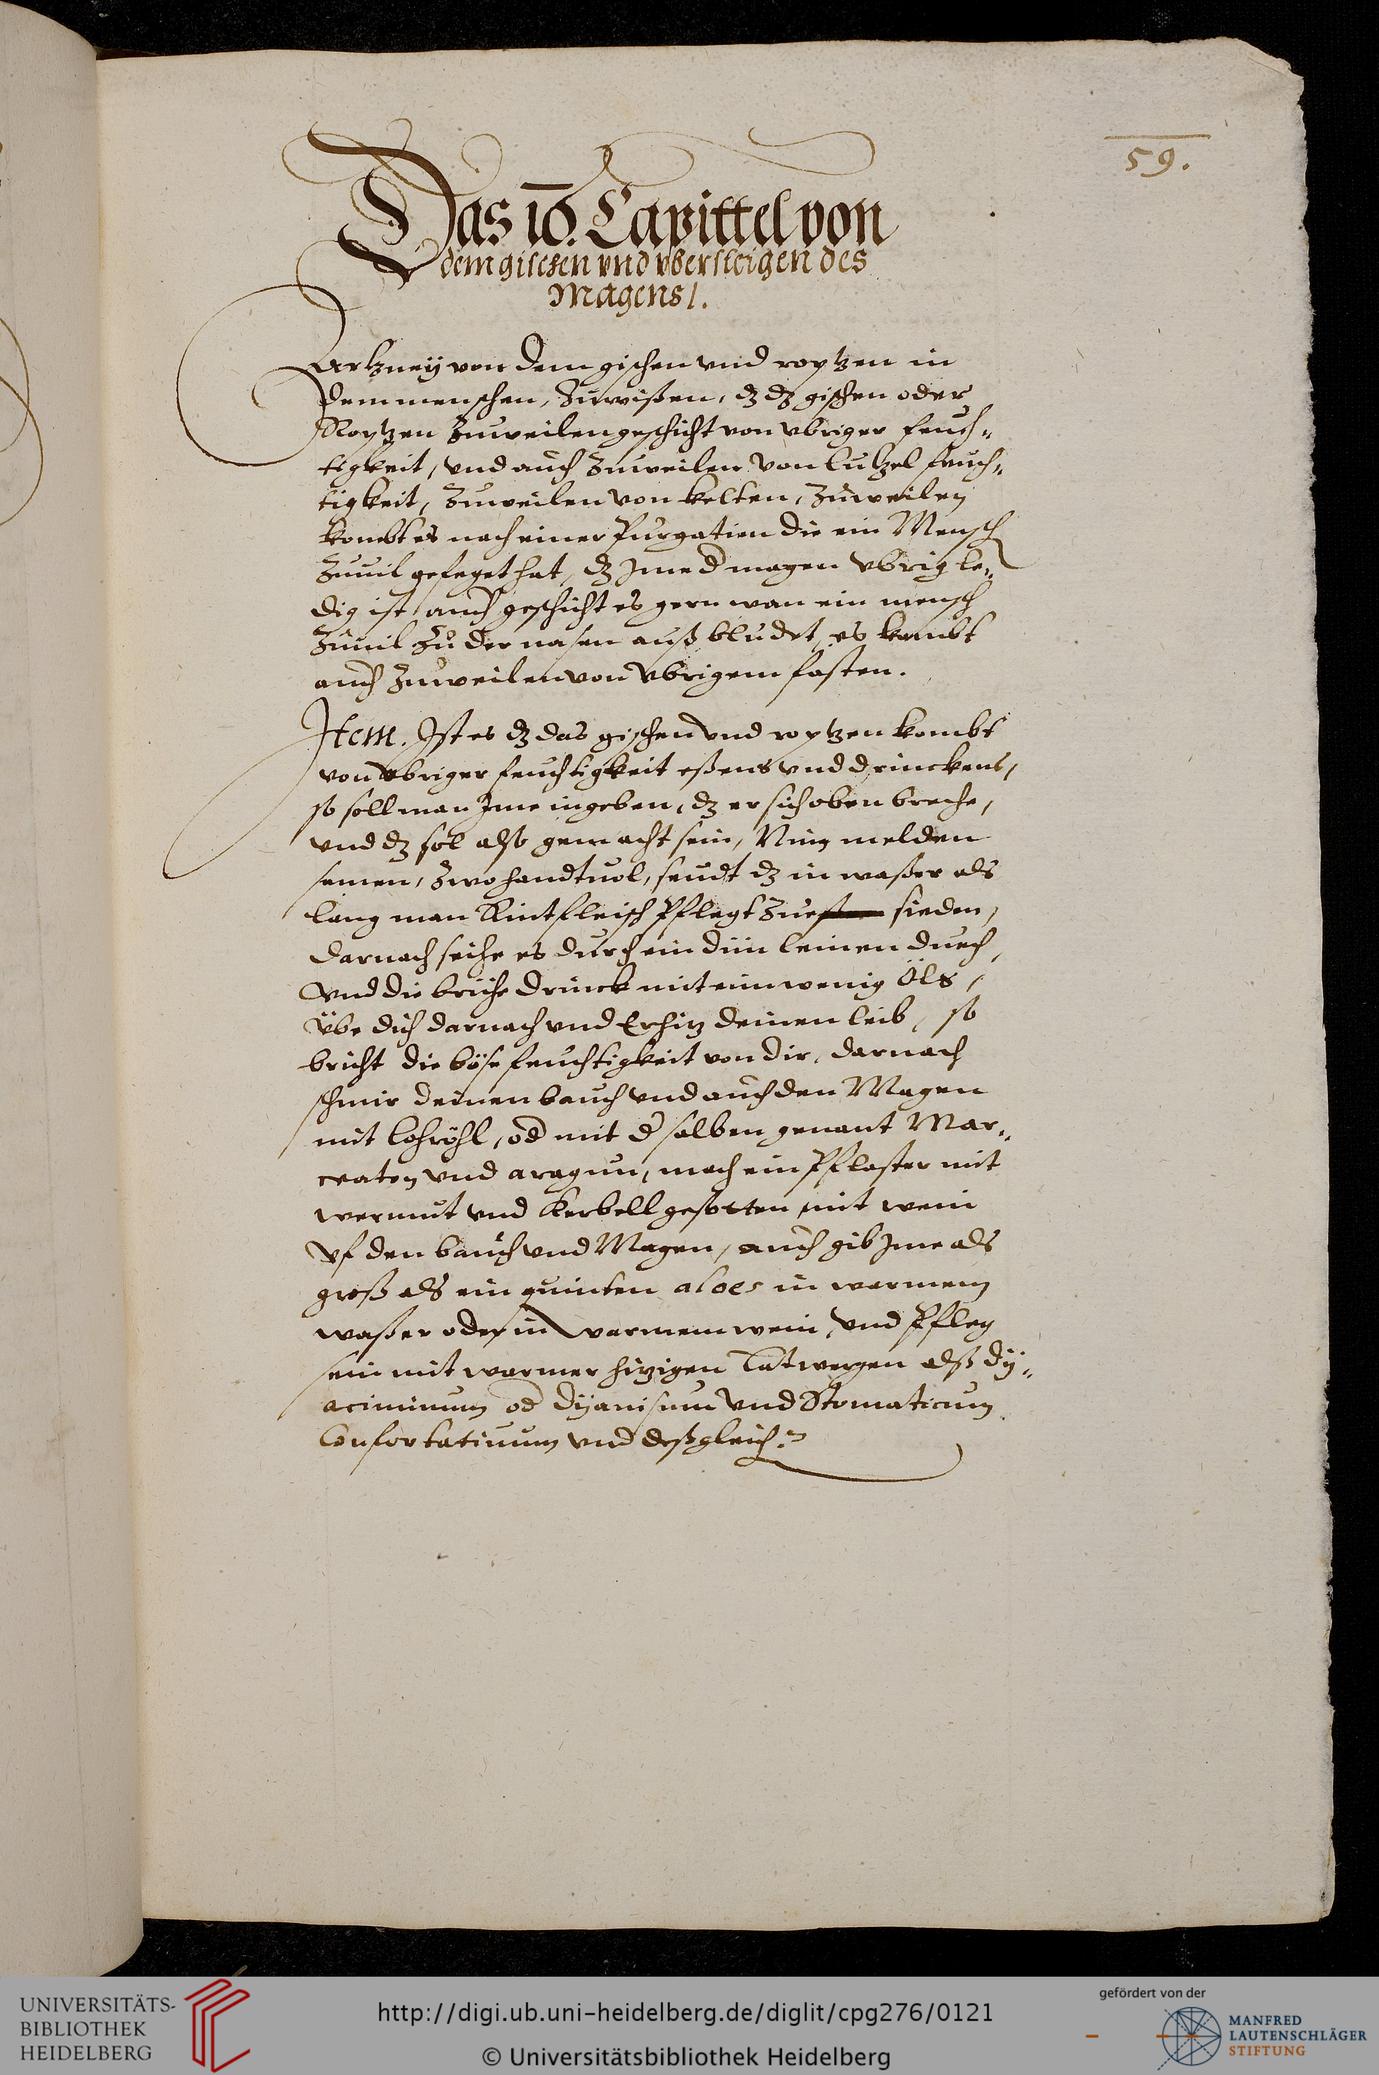 59.
Das 10. Capittel von
dem gischen vnd vbersteigen des
Magens /.
Artzney von dem gischen vnd roptzen in
dem menschen, Zuwißen, dz dz gischen oder
Roptzen Zuweilen geschicht von vbriger feuch„
tigkeit, vnd auch Zuweilen von lutzel feuch„
tigkeit, Zuweilen von kelten, Zuweilen
kombt es nach einer Purgatien die ein Mensch
Zuuil gefeget hat, dz Jme d magen vbrig le„
dig ist, auch geschicht es gern wan ein mensch
Zuuil Zu der nasen auß bludet, es kombt
auch Zuweilen von vbrigem fasten.
Item. Ist es dz das gischen vnd roptzen kombt
von vbriger feuchtigkeit eßens vnd drinckens,
so soll man Jme ingeben, dz er sich oben breche,
vnd dz sol also gemacht sein, Nim melden
samen, Zwo handtuol, seudt dz in waßer als
lang man Rintfleisch pflegt Zue sieden,
darnach seihe es durch ein dün leinen duech,
vnd die brühe drinck mit eim wenig Öls,
übe dich darnach vnd Erhitz deinen leib, so
bricht die böse feuchtigkeit von dir, darnach
schmir deinen bauch vnd auch den Magen
mit lohröhl, od mit d salben genant Mar„
ciaton vnd aragun, mach ein Pflaster mit
wermut vnd Kerbell gesotten mit wein
vf den bauch vnd Magen, auch gib Jme als
groß als ein quinten aloes in warmem
waßer oder in warmem wein, vnd Pfleg
sein mit warmer hitzigen Latwergen alß dÿ„
aciminum od dÿanisum vnd Stomaticum
Confortatiuum vnd deßgleich.
UNIVERSITÄTS-
BIBLIOTHEK
HEIDELBERG
http://digi.ub.uni-heidelberg.de/diglit/cpg276/0121
© Universitätsbibliothek Heidelberg
gefördert von der
MANFRED
LAUTENSCHLÄGER
STIFTUNG